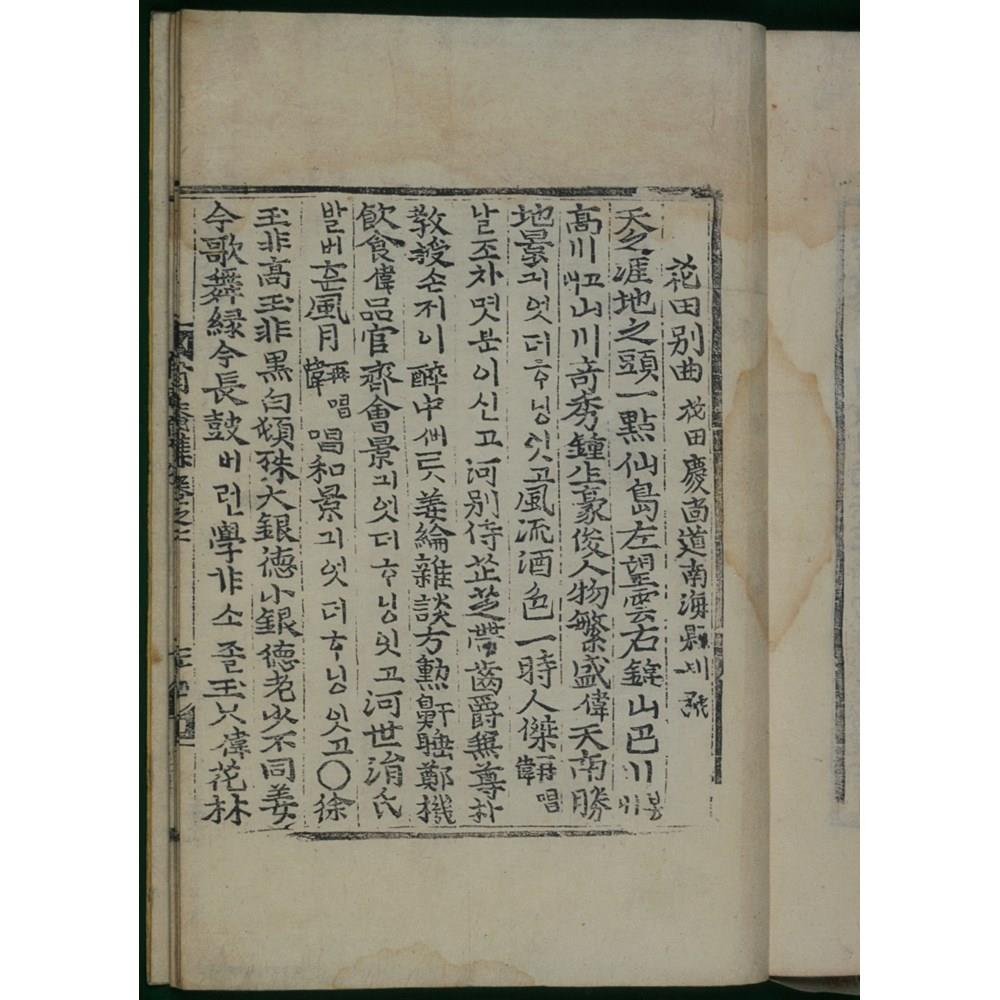 花田别曲 花田慶尙道南海縣别號
天之涯地之頭一點仙島左望雲右錦山巴川
高川山川奇秀鐘生豪俊人物繁盛偉天南勝
地景긔엇더ᄒᆞ닝잇고風流酒色一時人傑再唱偉
날조차몃분이신고河别侍芷芝帶齒爵無尊朴
敎授손저이醉中 姜綸雜談方勲鼾睡鄭機
飮食偉品官齊會景긔엇더ᄒᆞ닝잇고河世涓氏
발버ᄒᆞᆫ風月再唱偉唱和景긔엇더ᄒᆞ닝잇고○徐
玉非高玉非黑白頓殊大銀德小銀德老少不同姜
今歌舞緑今長鼓버런學非소졸玉只偉花林